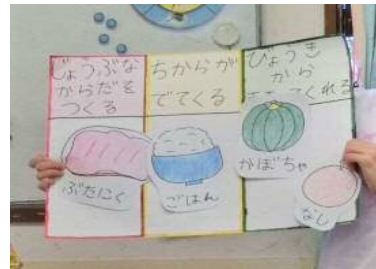 じょうぶな
からだを
つくる
ちからが
でてくる
びょうき
から
くれる
ぶたにく
ごはん
かぼちゃ
なし